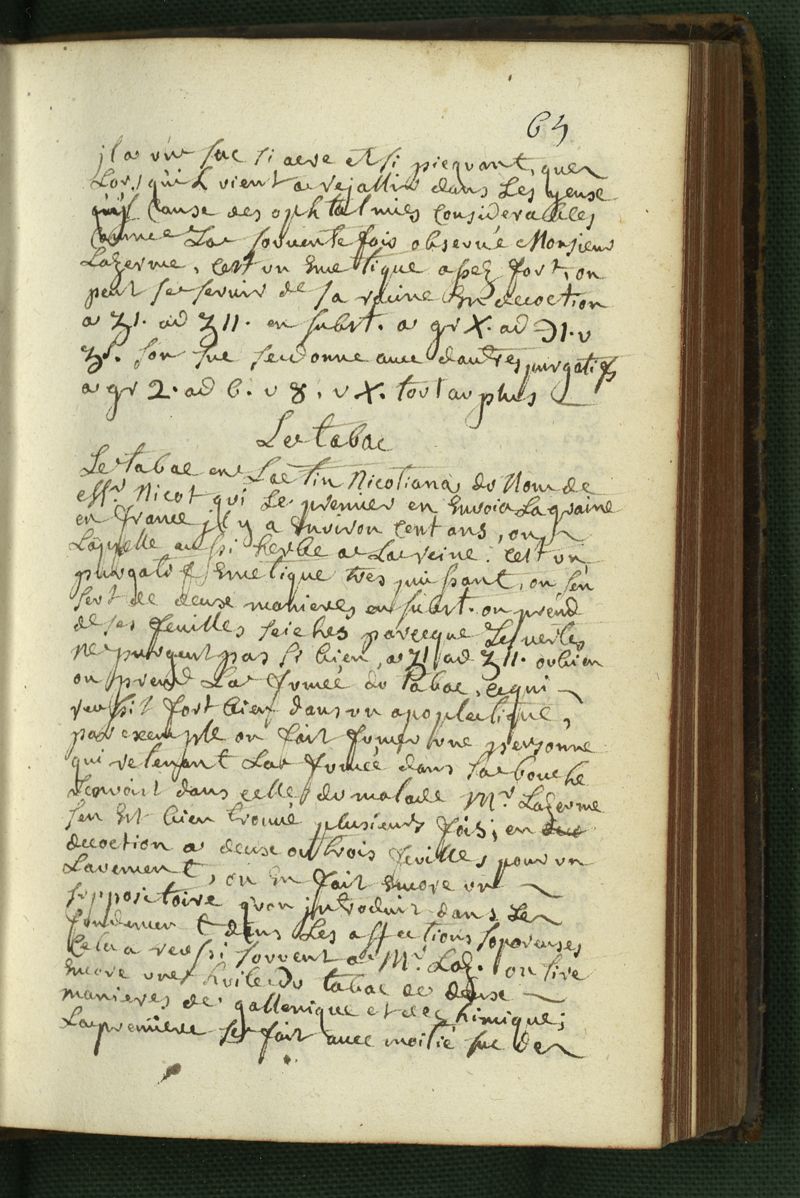 65
jl a un suc si acre et si picquant, que
Lors quil vient a rejallir dans Les yeuse
cause des ophtalmies Considerables
comme La souvente fois observé Monsieur
Lazerme, cest un Emetique assez fort, on
peut se servir de sa racine En decoction
a ʒ1. ad ʒ11. en subst. a gr X. ad ℈1. v
ʒs. son suc se donne avec dautres purgatifs
a gr 2. ad 6. v 8. v X. tout au plus
Le tabac
Le tabac en Lactin Nicotiana du Nom de
Nicot qui Le premier en Envoia La graine
en France jl y a Environ Cent ans, on
Lappelle aussi herbe a La reine. cest un
purgatif Emetique tres puissant, on sen
sert de deuse manieres en subst. on prend
de ses feuilles seiches parceque Les vertes
ne purgent pas si bien, a ʒ1 ad ʒ11. ou bien
on prend La fumée du Tabac, ce qui
reussit fort bien dans un apoplectique,
par exemple on fait fumer une personne
qui retenant La fumée dans sa bouche
Lenvoit dans celle du malade Mr. Lazerme
sen Est bien trouvé plusieurs fois; en
decoction a deuse ou trois feuilles pour un
Lavement, on En fait Encore un
suppositoire quon jntroduit dans Le
fondement dans Les affections soporeuses
Cela a reussi souvent a Mr. Laz. on tire
Encore une huile du tabac de deuse
manieres de gallenique et de chimique;
La premiere se fait avec moitié suc de